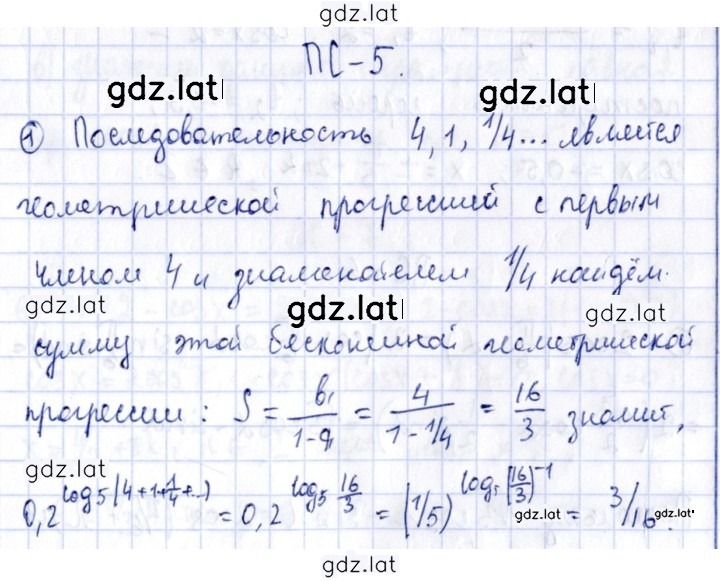 gdz.lat
ПС-5.
gdz.lat gdz.lat
① Последовательность 4, 1, 1/4... является
геометрической прогрессией с первым
членом 4 и знаменателем 1/4 найдём
gdz.lat gdz.lat gdz.lat
сумму этой бесконечной геометрической
прогрессии: S = b₁/(1-q) = 4/(1-1/4) = 16/3 значит,
gdz.lat
0,2^(log₅(4+1+1/4+...)) = 0,2^(log₅ 16/3) = (1/5)^(log₅(16/3)^-1) = 3/16.
gdz.lat gdz.lat
gdz.lat